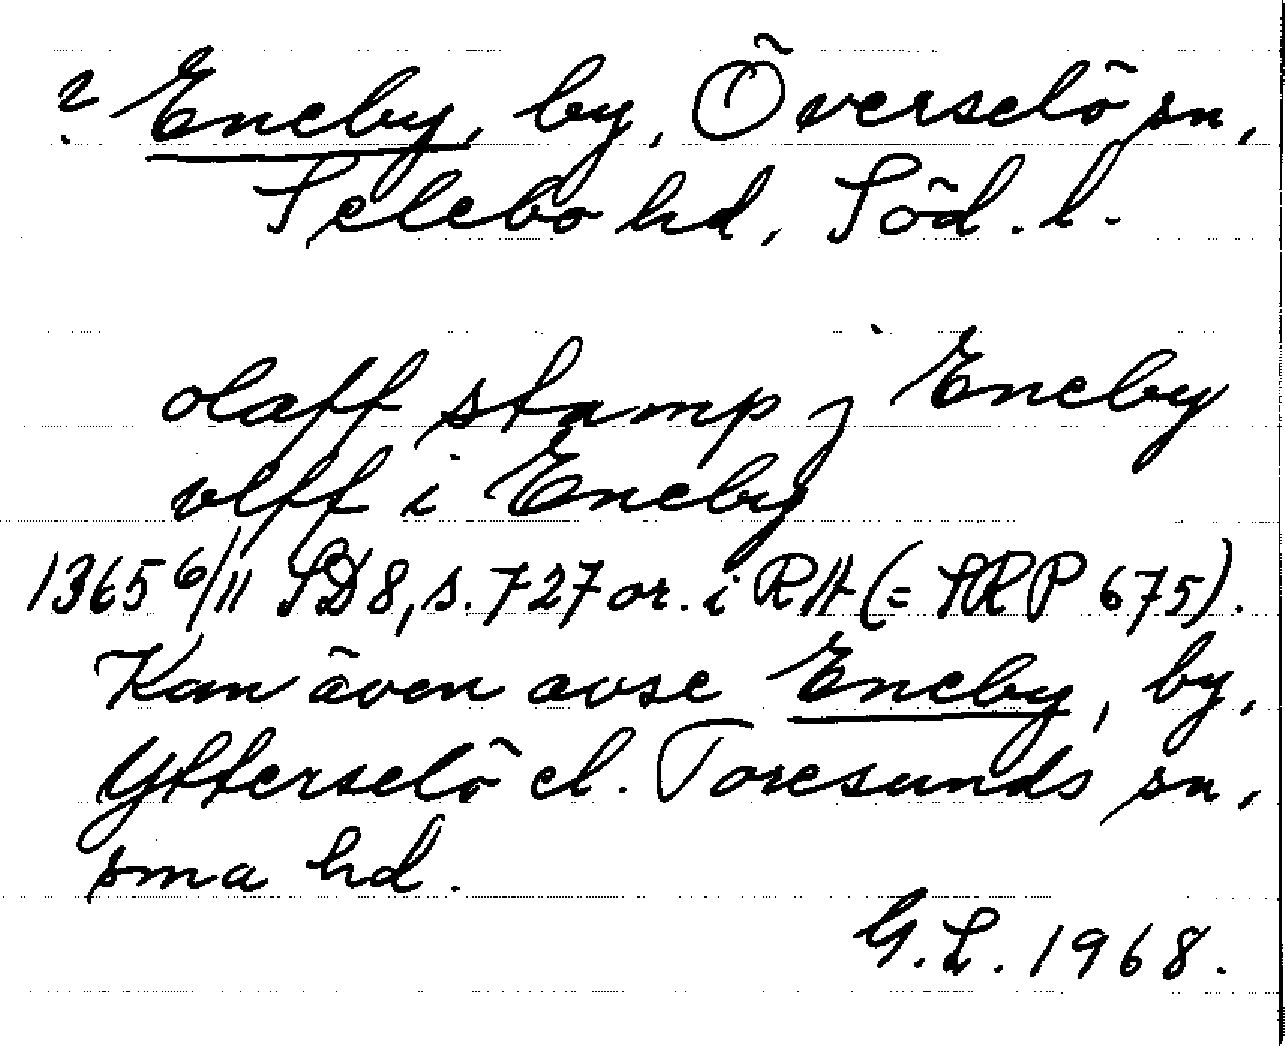 ? Eneby, by, Överselö sn,
Selebo hd, Söd. l.
olaff stamp j Eneby
vlff i Eneby
1365 6/11 SD8, s. 727 or. i RA (= SRP 675).
Kan även avse Eneby, by,
Ytterselö el. Toresunds sn,
sma hd.
G.L. 1968.